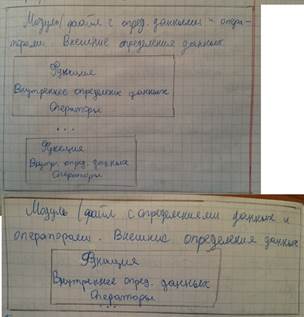 Модуль/файл с опред. данными и опера-
торами. Внешние определения данных
Функция
Внутреннее определение данных
Операторы
...
Функция
Внутр. опред. данных
Операторы
Модуль/файл с определениями данных и
операторами. Внешние определения данных
Функция
Внутреннее опред. данных
Операторы